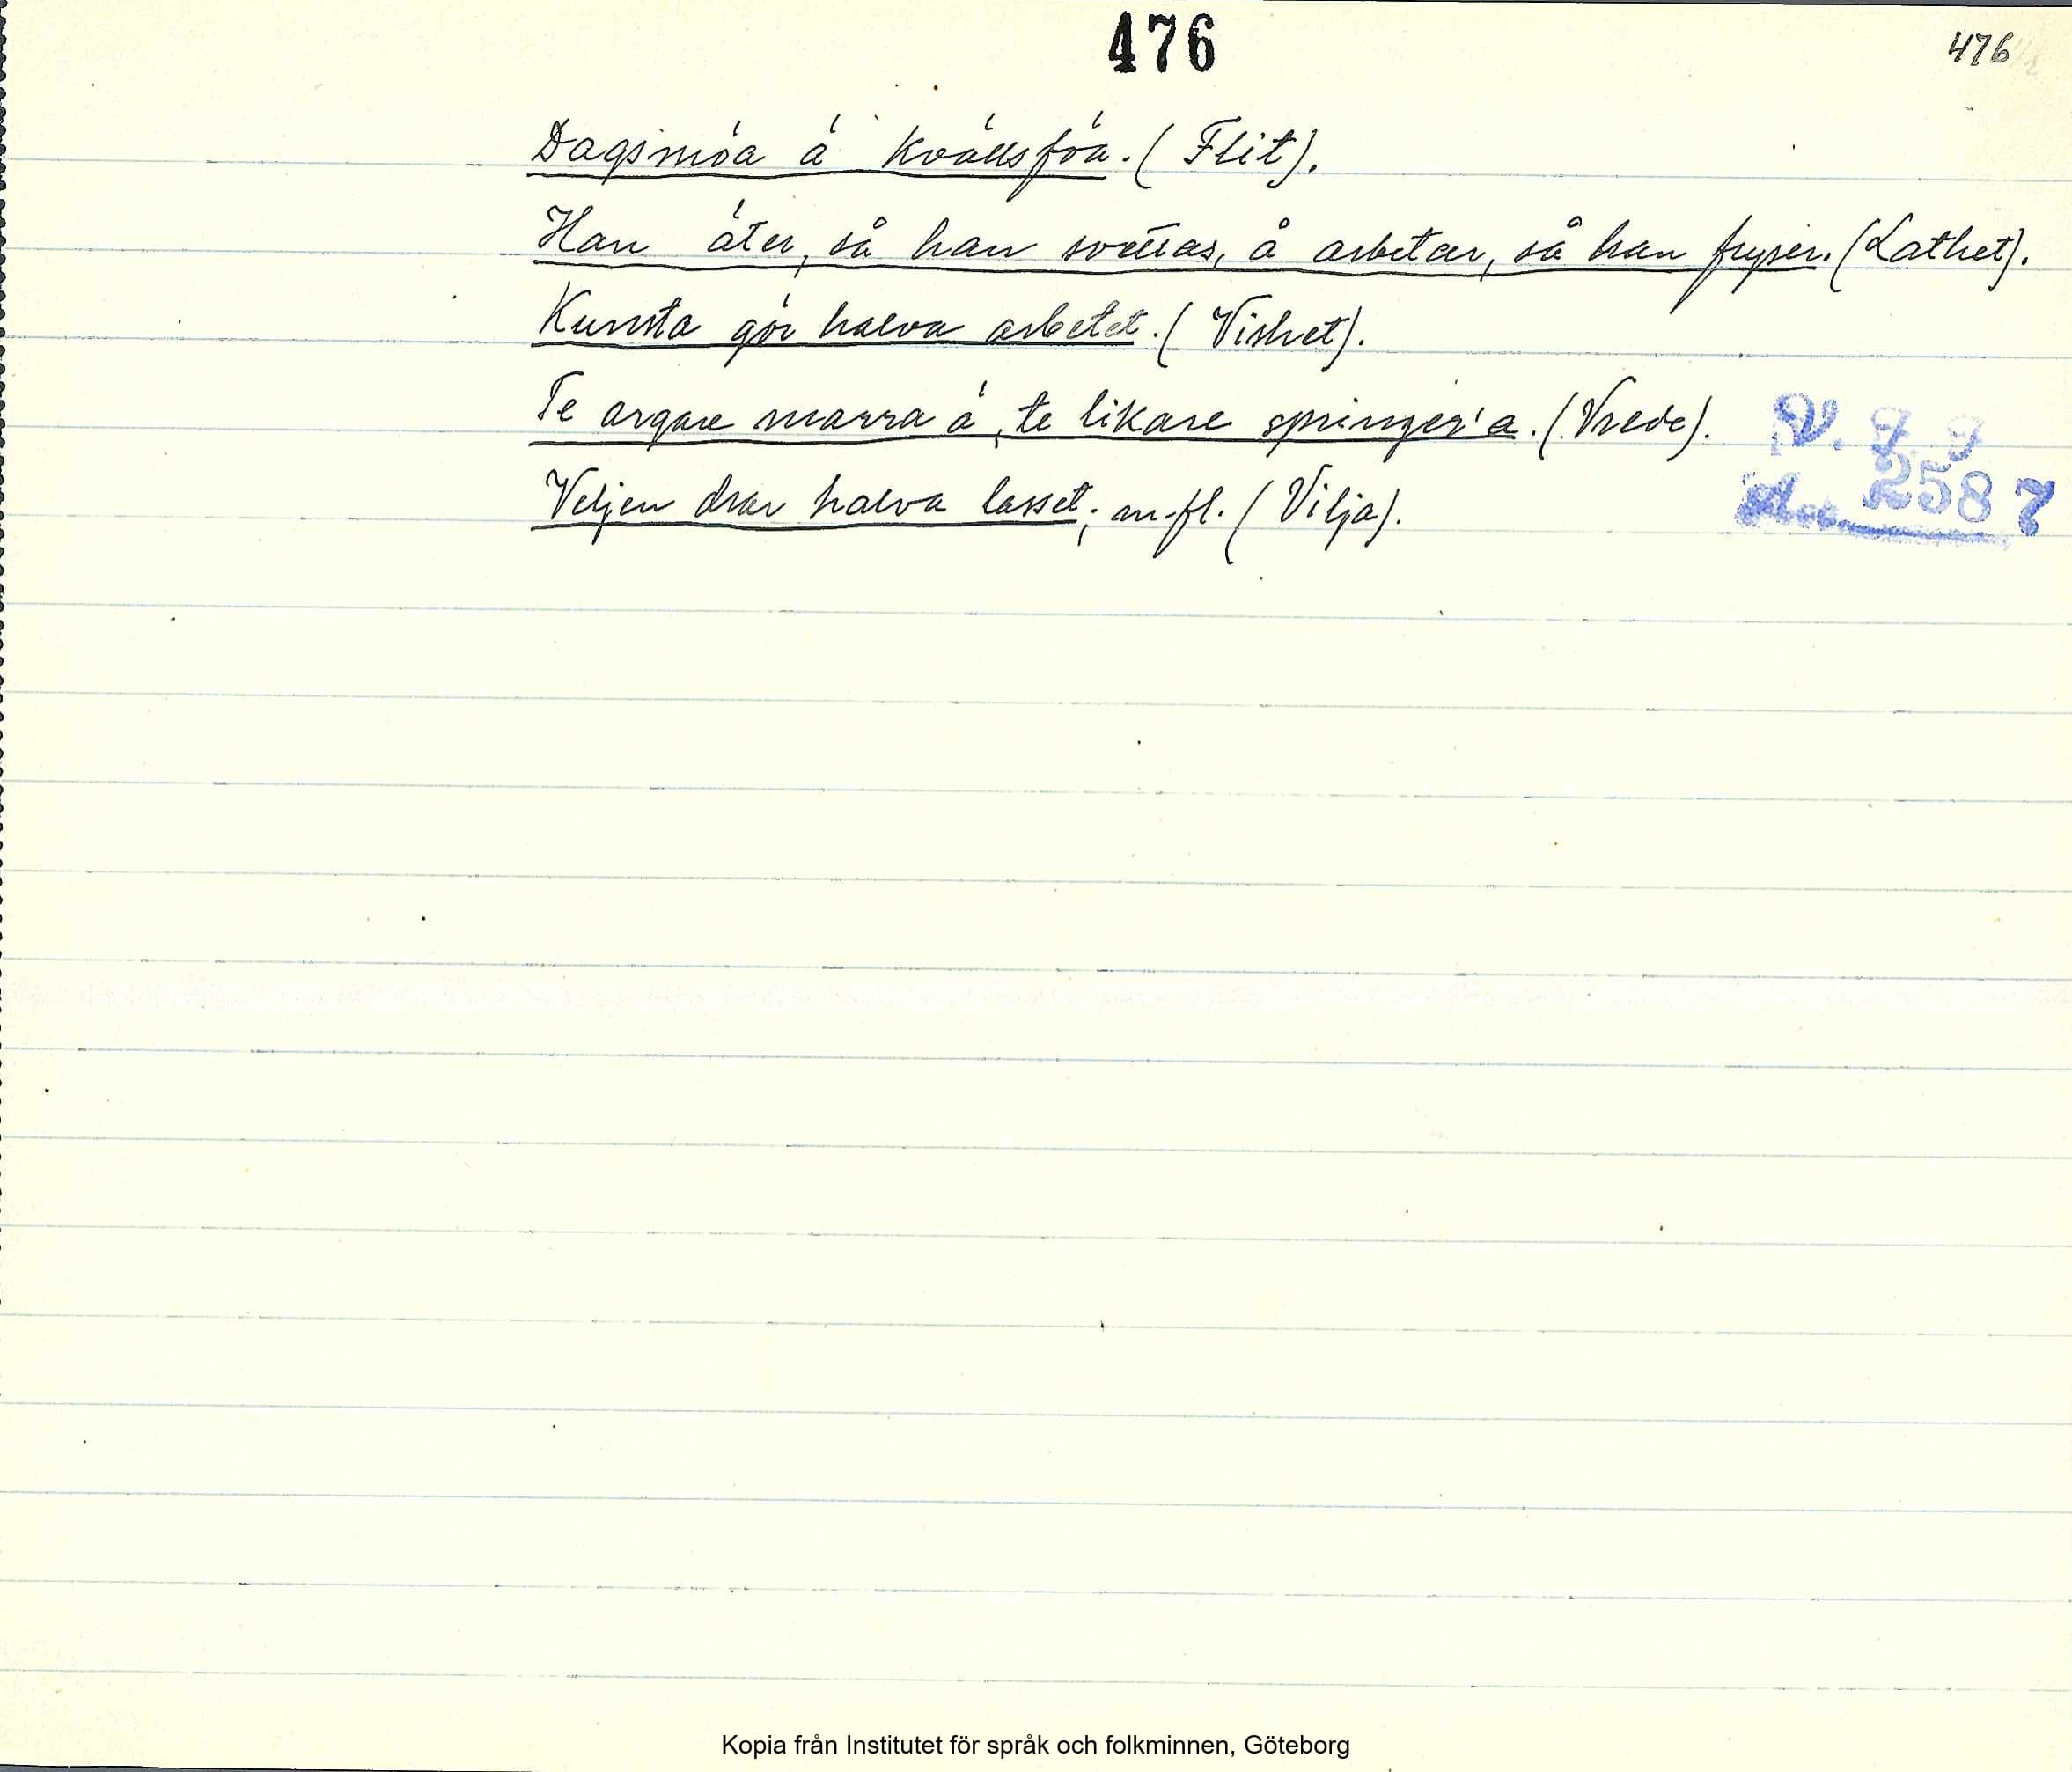 476
476
Dagsmöa å kvällsföa. (Flit).
Han äter, så han svettas, å arbetar, så han fryser. (Lathet).
Kunsta gör halva arbetet. (Vishet).
Te argare marra ä, te likare springer'a. (Vrede).
Veljen drar halva lasset; m.fl. (Vilja).
V. F. F
2587
Kopia från Institutet för språk och folkminnen, Göteborg